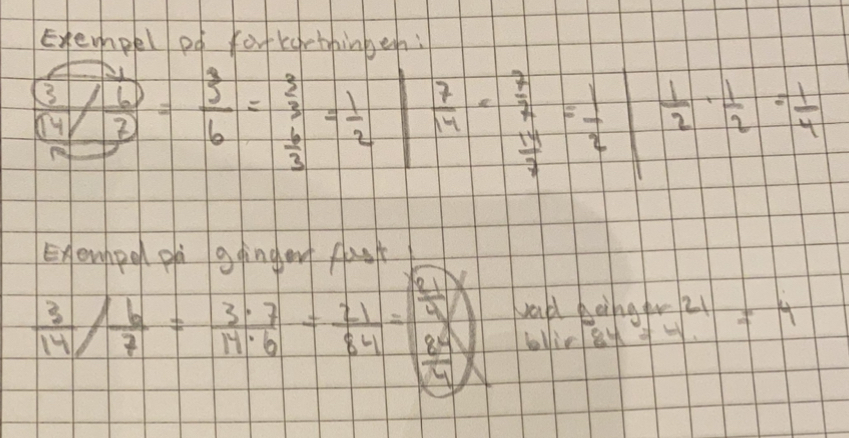 Exempel på förkortningen:
3/14 / 6/7 = 3/6 = 3/3 / 6/3 = 1/2 | 7/14 = 7/7 / 14/7 = 1/2 | 1/2 · 1/2 = 1/4
Exempel på gånger fast:
3/14 / 6/7 = 3·7/14·6 = 21/84 = 21/4 / 84/4 vad gånger 21 = 4
blir 84 = 4.